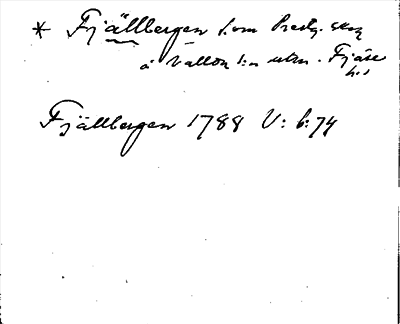 * Fjällbergen l:om Prestg. skog
å Vallda l:n utm. Fjäre
h:d
Fjällbergen 1788 V: b: 74